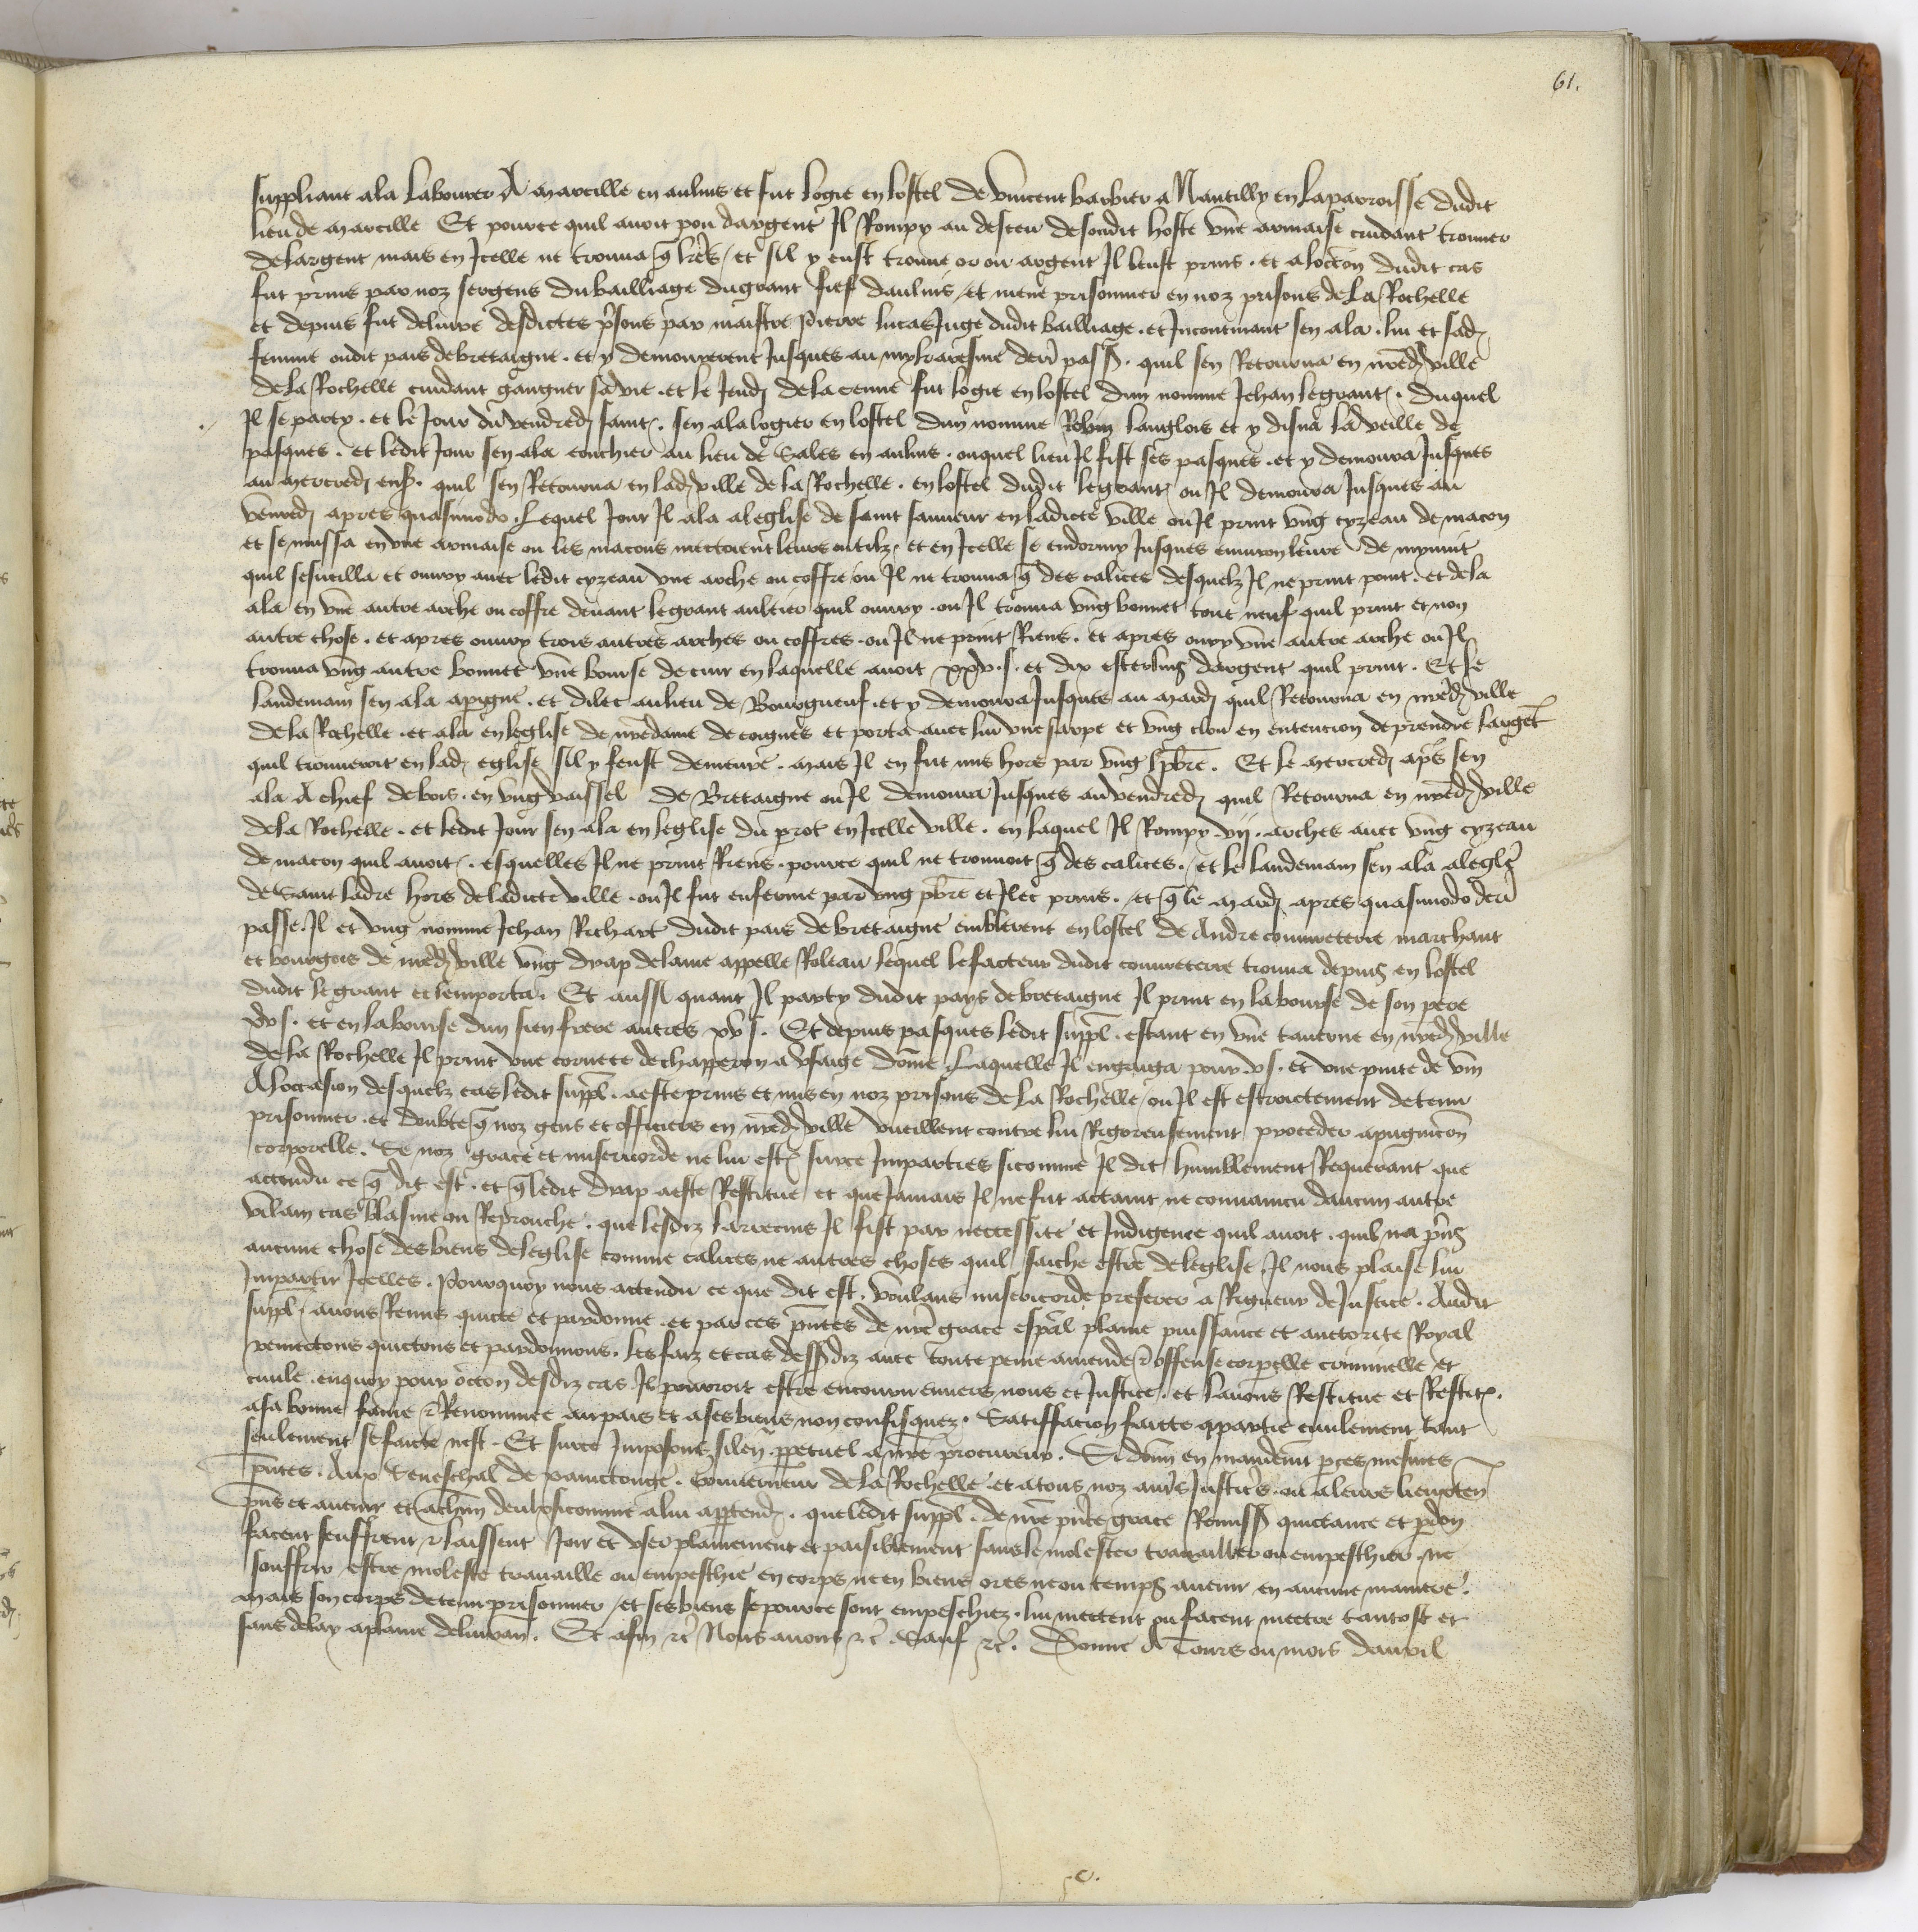 61.
suppliant ala labourer A marcille en aulnis et fut logie en lostel de vincent barbier a Nantilly en la parroisse dudit
lieu de marcille Et pource quil avoit pou dargent Il Rompy au desceu desondit hoste vne armaise cuidant trouuer
delargent mais en Icelle ne trouua q̃ lr̃es / et sil y eust trouue or ou argent Il leust prins . et a loccon̄ dudit cas
fut prins par noz sergens du bailliage dugrant fief daulnis / et mene prisonnier en noz prisons de la Rochelle
et depuis fut deliure desdictes p̃sons par maistre pierre lucas Juge dudit bailliage . et Incontinant sen ala . lui et sad
femme oudit pais debretaigne . et y demourerent Jusques au mykaresme derr̃ pass̃ . quil sen Retourna en nr̃ed ville
dela Rochelle cuidant gaingner sa vie . et le Jeud dela cenne fut logie en lostel dun nomme Jehan legrant . duquel
Il se party . et le Jour du vendred saint . sen ala logier en lostel dun nomme Robin langlois et y disna la veille de
pasques . et ledit Jour sen ala couchier au lieu de Sales en aulnis . ouquel lieu Il fist ses pasques . et y demoura Jusques
au mercred ens̃ . quil sen Retourna en lad ville de la Rochelle . en lostel dudit legrant ou Il demoura Jusques au
venred apres quasimodo . Lequel Jour Il ala aleglise de saint sauueur en ladicte ville ou Il print vng cyzeau de macon
et se mussa en vne armaise ou les macons mectoient leurs oultilz / et en Icelle se endormy Jusques enuiron leure de mynuit
quil sesueilla et ouury auec ledit cyzeau vne arche ou coffre ou Il ne trouua q̃ des calices desquelz Il ne print point . et dela
ala en vne autre arche ou coffre deuant legrant aultier quil ouury . ou Il trouua vng bonnet tout neuf quil print et non
autre chose . et apres ouury trois autres arches ou coffres . ou Il ne print Riens . et apres ouury vne autre arche ou Il
trouua vng autre bonnet vne bourse de cuir en laquelle auoit xxv . s . et dix esterlins dargent quil print . Et le
landemain sen ala apigne . et dilec au lieu de Bourgneuf . et y demoura Jusques au mard quil Retourna en nr̃ed ville
dela Rochelle . et ala en leglise de nr̃edame de coignes et porta auec lui vne sarpe et vng clou en entencion de prendre larget̃
quil trouueroit en lad eglise sil y feust demeure . mais Il en fut mis hors par vng pb̃re . Et le mercred ap̃s sen
ala A chief debois . en vng vaissel de Bretaigne ou Il demoura Jusques au vendred quil Retourna en nr̃ed ville
dela Rochelle . et ledit Jour sen ala en leglise du perot en Icelle ville . en laquel Il Rompy vij . arches auec vng cyzeau
de macon quil auoit . esquelles Il ne print Riens . pource quil ne trouuoit q̃ des calices . et le landemain sen ala alegl̃e
de Saint ladre hors deladicte ville . ou Il fut enferme par vng pb̃re et Ilec prins . et q̃ le mard apres quasimodo derr̃
passe . Il et vng nomme Jehan Richart dudit pais de bretaigne emblerent en lostel de Andre couureterre marchant
et bourgois de nr̃ed ville vng drap delaine appelle Roleau lequel le facteur dudit couureterre trouua depuis en lostel
dudit legrant et lemporta . Et aussi quant Il party dudit pays debretaigne Il print en la bourse de son pere
xv s . et en la bourse dun sien frere autres xv s . Et depuis pasques ledit suppl̃ . estant en vne tauerne en nr̃ed ville
dela Rochelle Il print vne cornete de chapperon a vsaige dom̃e Laquelle Il engaiga pour v s . et vne pinte de vin
A loccasion desquelz cas ledit suppl̃ . a este prins et mis en noz prisons dela Rochelle / ou Il est estroictement detenu
prisonnier . et doubte q̃ noz gens et officiers en nr̃ed ville vueillent contre lui Rigoreusement proceder apugnicon̄
corporelle . Se noz grace et misericorde ne lui est surce Imparties sicomme Il dit humblement Requerant que
actendu ce q̃ dit est . et q̃ ledit drap a este Restitue et que Jamais Il ne fut actaint ne conuaincu daucun autre
vilain cas blasme ou Reprouche . que lesdiz larrecins Il fist par neccessite et Indigence quil auoit . quil na p̃ns
aucune chose des biens deleglise comme calices ne autres choses quil saiche estre deleglise . Il nous plaise lui
Impartir Icelles . Pourquoy nous actendu ce que dit est . voulans misericorde preferer a Rigueur de Justice . Audit
suppl̃ . auons Remis quicte et pardonne . et par ces pñtes de nr̃e grace esp̃al plaine puissance et auctorite Royal
remectons quictons et pardonnons . les faiz et cas dess̃diz auec toute peine amende ⁊ offense corporelle criminelle et
ciuile . enquoy pour occon̄ desdiz cas Il pourroit estre encouru enuers nous et Justice . et lauons Restitue et Restit .
a sa bonne fame ⁊ Renommee au pais et a ses biens non confisquez . Satiffacion faicte a partie ciuilement tant
seulement se faicte nest . Et surce Imposons silen̄ . perpetuel a nr̃e procureur . Si don̄ en mandemt p̃ ces mesmes
pñtes . Aux Seneschal de xainctonge . Gouuerneur dela Rochelle et a tous noz aut̃s Justic̃s . ou a leurs lieuxten̄
pñs et auenir et achũn deulx sicomme a lui appertend . que ledit suppl̃ . de nr̃e pñte grace Remiss̃ quictance et p̃don
facent seuffrent ⁊ laissent Joir et vser plainement et paisiblement sans le molester trauaillier ou empeschier . ne
souffrir estre moleste trauaille ou empeschie en corps ne en biens ores ne ou temps auenir en aucune maniere .
mais son corps detenu prisonnier / et ses biens se pource sont empeschiez . lui mectent ou facent mectre tantost et
sans delay aplaine deliuran̄ . Et afin ⁊c̃ Nous auons ⁊c̃ Sauf ⁊c̃ . Donne A Tours ou mois dauril